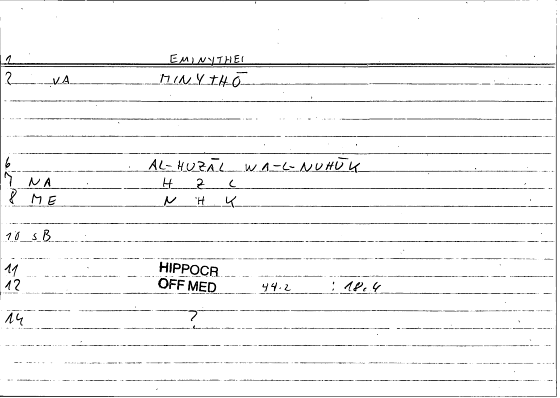 1 EMINYTHEI
2 VA MINYTHŌ
6 AL-HUZĀL WA-L-NUHŪK
7 NA H Z L
8 ME N H K
10 SB
11 HIPPOCR
12 OFF MED 44.2 : 18.4
14 ?